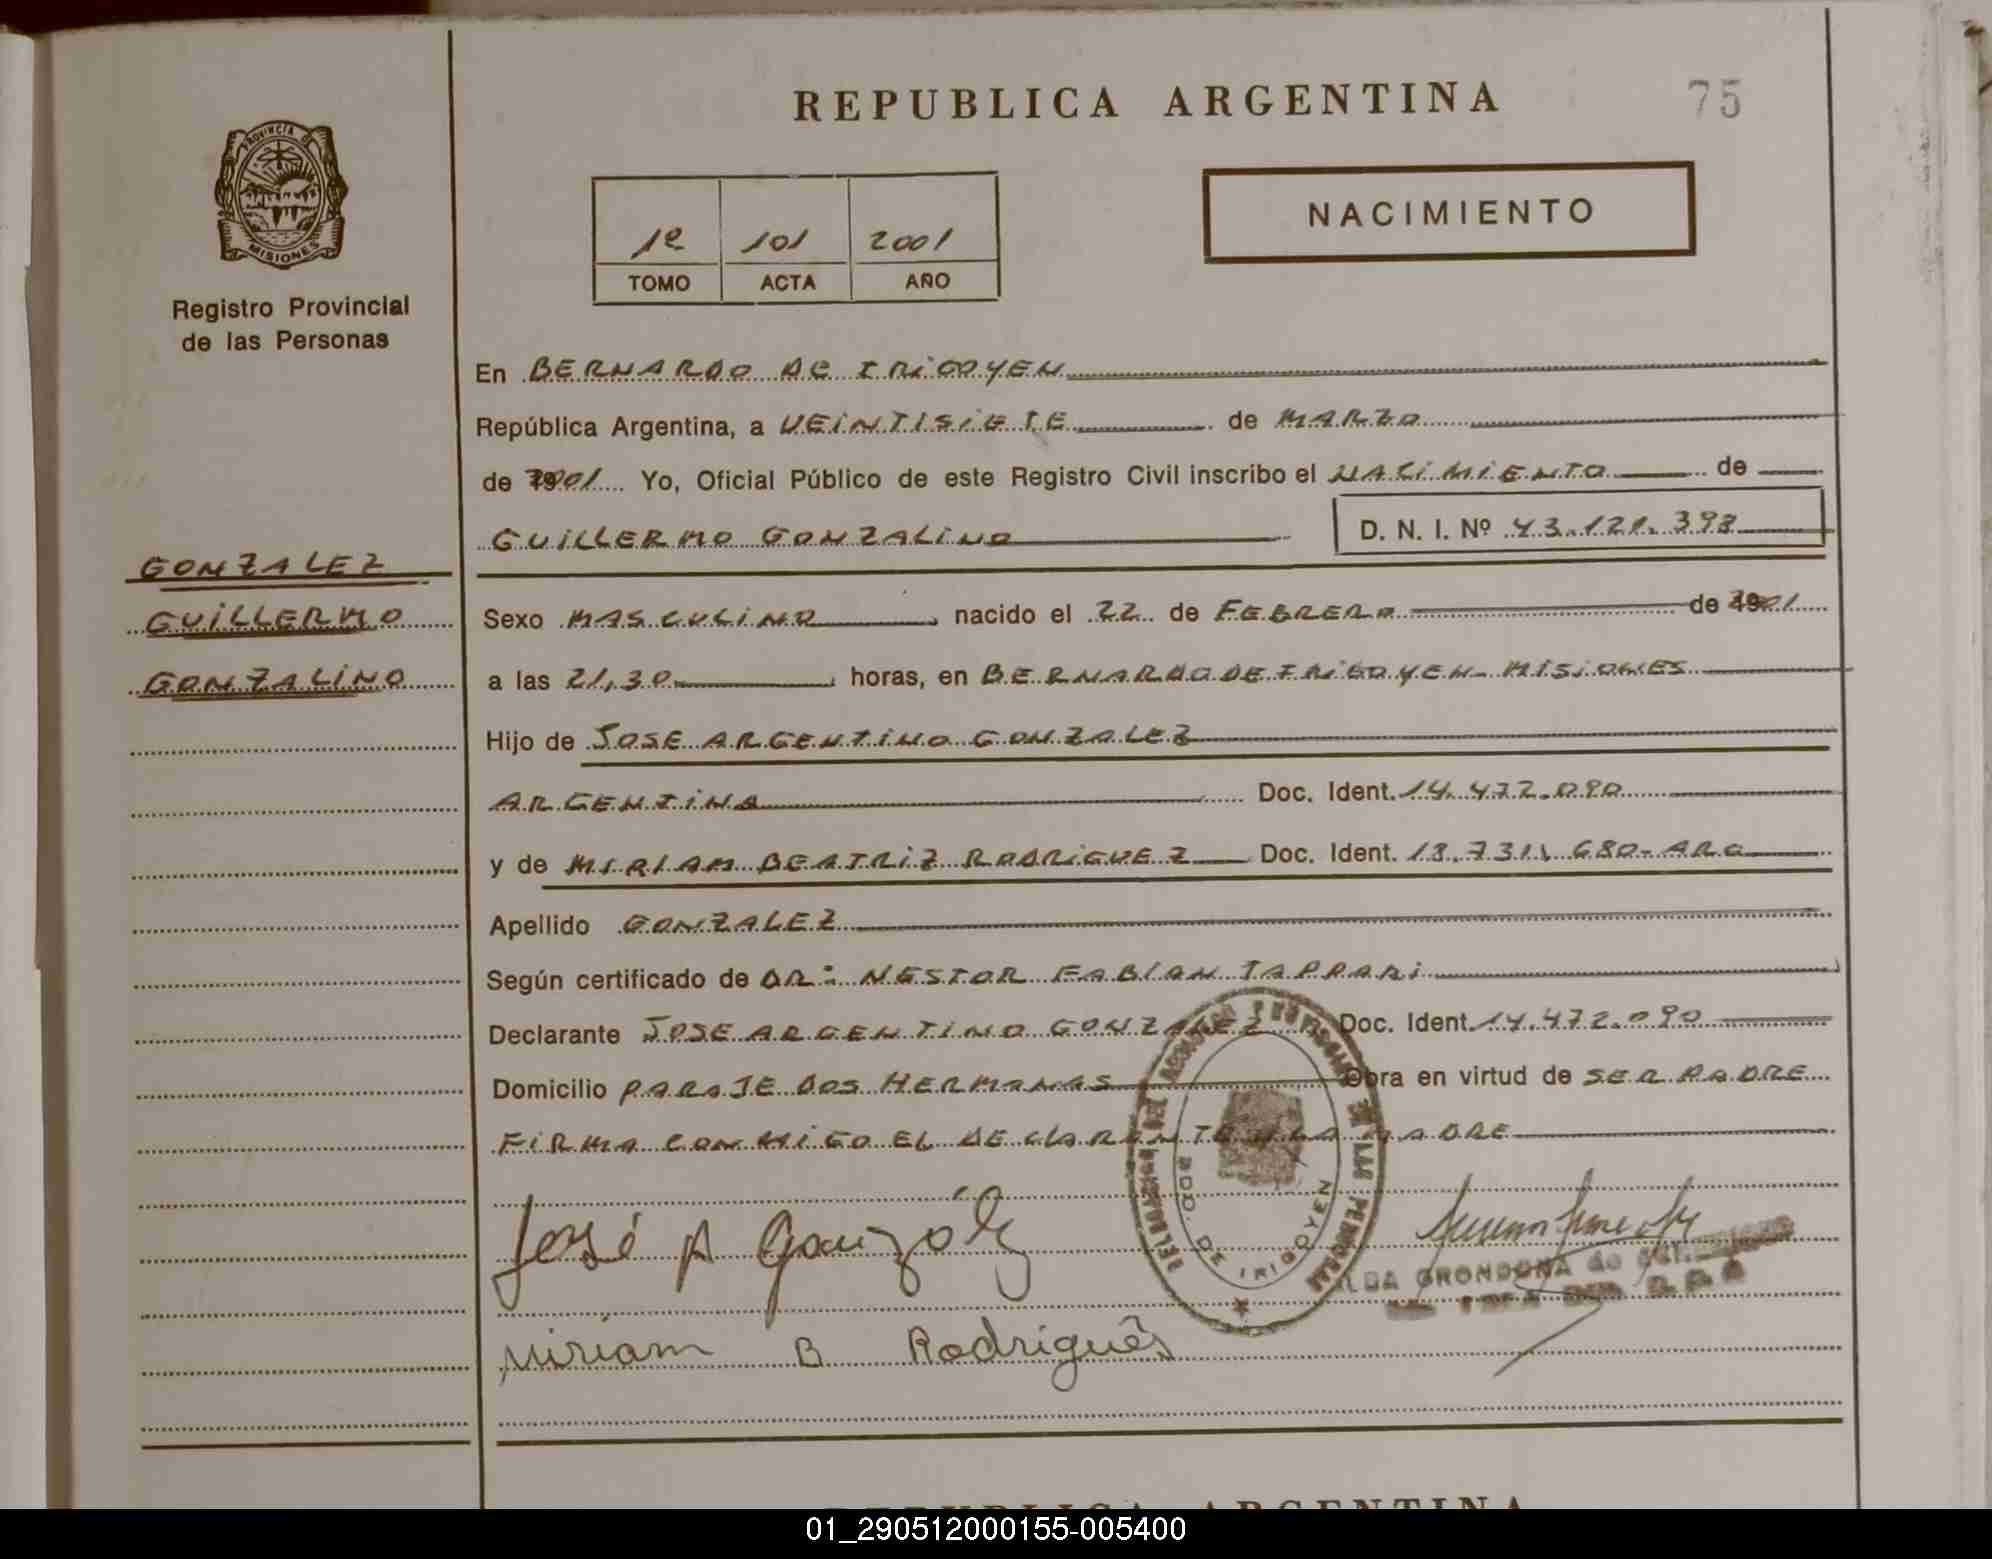 REPUBLICA ARGENTINA
75
PROVINCIA DE
MISIONES
Registro Provincial
de las Personas
1º 101 2001
TOMO ACTA AÑO
NACIMIENTO
En BERNARDO DE IRIGOYEN
República Argentina, a VEINTISIETE de MARZO
de 2001 Yo, Oficial Público de este Registro Civil inscribo el NACIMIENTO de
GUILLERMO GONZALINO
D. N. I. Nº 43.121.393
GONZALEZ
GUILLERMO
GONZALINO
Sexo MASCULINO nacido el 22 de FEBRERO de 2001
a las 21,30 horas, en BERNARDO DE IRIGOYEN - MISIONES
Hijo de JOSE ARGENTINO GONZALEZ
ARGENTINA Doc. Ident. 14.472.090
y de MIRIAM BEATRIZ RODRIGUEZ Doc. Ident. 18.731.680-ARG
Apellido GONZALEZ
Según certificado de DR: NESTOR FABIAN TAPPARI
Declarante JOSE ARGENTINO GONZALEZ Doc. Ident. 14.472.090
Domicilio PARAJE DOS HERMANAS Obra en virtud de SER PADRE
FIRMA CONMIGO EL DECLARANTE Y LA MADRE
José A González
Miriam B Rodriguês
BDO. DE IRIGOYEN
ALBA GRONDONA de
REPUBLICA ARGENTINA
01_290512000155-005400